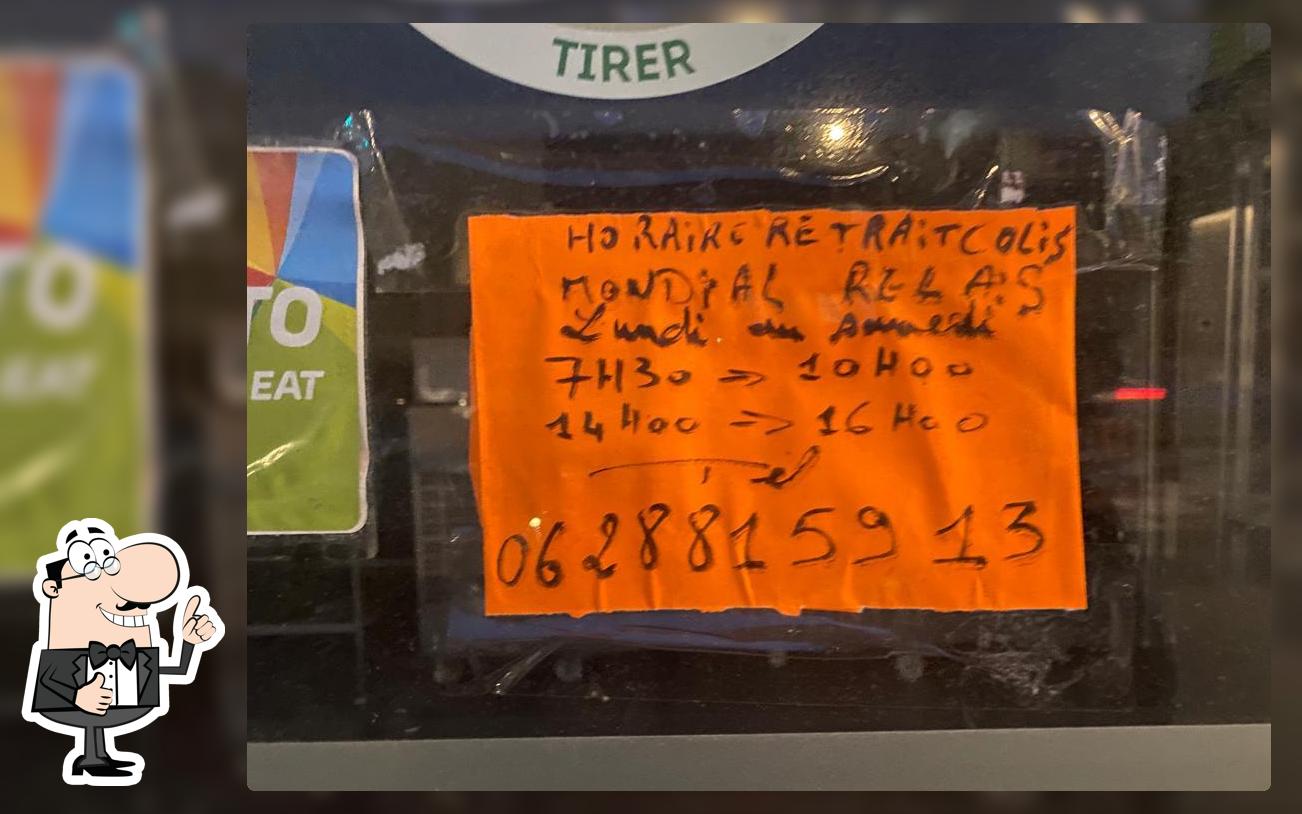 TIRER
TO
EAT
HORAIRE RETRAIT COLIS
MONDIAL RELAIS
Lundi au Samedi
7H30 => 10H00
14H00 => 16H00
Tel
06 28815913